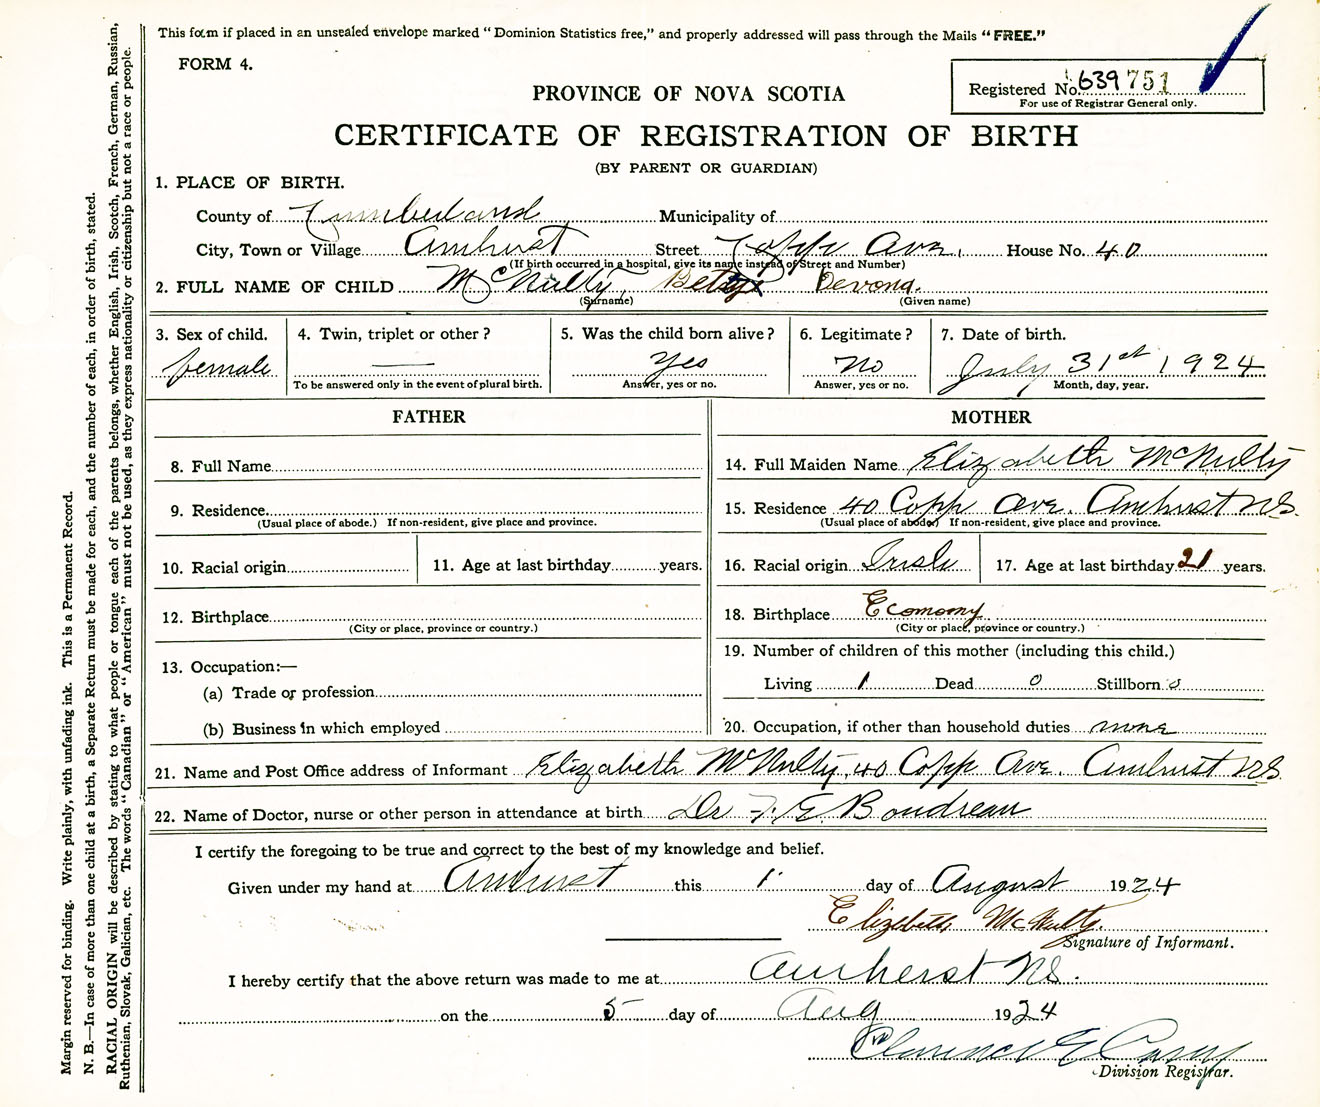 This form if placed in an unsealed envelope marked "Dominion Statistics free," and properly addressed will pass through the Mails "FREE."
FORM 4.
Registered No. 639751
For use of Registrar General only.
PROVINCE OF NOVA SCOTIA
CERTIFICATE OF REGISTRATION OF BIRTH
(BY PARENT OR GUARDIAN)
1. PLACE OF BIRTH.
County of Cumberland Municipality of
City, Town or Village Amhurst Street Copp Ave. House No. 40
(If birth occurred in a hospital, give its name instead of Street and Number)
2. FULL NAME OF CHILD McNulty, Betsy Devona.
(Surname) (Given name)
3. Sex of child. 4. Twin, triplet or other? 5. Was the child born alive? 6. Legitimate? 7. Date of birth.
female — Yes No July 31st 1924
To be answered only in the event of plural birth. Answer, yes or no. Answer, yes or no. Month, day, year.
FATHER
8. Full Name
9. Residence.
(Usual place of abode.) If non-resident, give place and province.
10. Racial origin 11. Age at last birthday years.
12. Birthplace
(City or place, province or country.)
13. Occupation:—
(a) Trade or profession
(b) Business in which employed
MOTHER
14. Full Maiden Name Elizabeth McNulty
15. Residence 40 Copp Ave. Amhurst N.S.
(Usual place of abode) If non-resident, give place and province.
16. Racial origin Irish 17. Age at last birthday 21 years.
18. Birthplace Economy
(City or place, province or country.)
19. Number of children of this mother (including this child.)
Living 1 Dead 0 Stillborn 0
20. Occupation, if other than household duties none
21. Name and Post Office address of Informant Elizabeth McNulty, 40 Copp Ave. Amhurst N.S.
22. Name of Doctor, nurse or other person in attendance at birth Dr F. E Boudreau
I certify the foregoing to be true and correct to the best of my knowledge and belief.
Given under my hand at Amhurst this 1 day of August 1924
Elizebeth McNulty.
Signature of Informant.
I hereby certify that the above return was made to me at Amherst N.S.
on the 5 day of Aug 1924
Clarence E Casey
Division Registrar.
Margin reserved for binding. Write plainly, with unfading ink. This is a Permanent Record.
N. B.—In case of more than one child at a birth, a Separate Return must be made for each, and the number of each, in order of birth, stated.
RACIAL ORIGIN will be described by stating to what people or tongue each of the parents belongs, whether English, Irish, Scotch, French, German, Russian,
Ruthenian, Slovak, Galician, etc. The words "Canadian" or "American" must not be used, as they express nationality or citizenship but not a race or people.